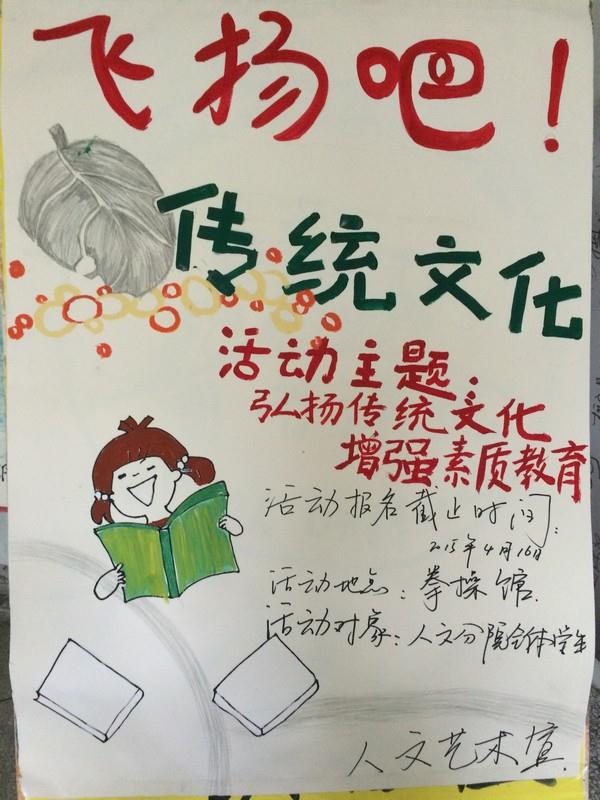 飞扬吧！
传统文化
活动主题：
弘扬传统文化
增强素质教育
活动报名截止时间：
2015年4月16日
活动地点：拳操馆
活动对象：人文分院全体学生
人文艺术宣